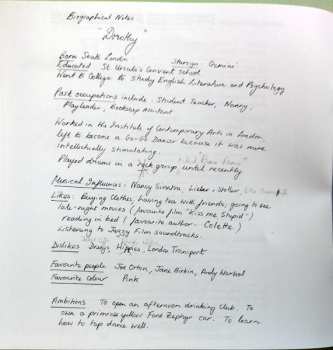 Biographical Notes
"Dorothy"
Born South London Starsign Gemini
Educated St Ursula's Convent School
Went to College to Study English Literature and Psychology
Past occupations include: Student Teacher, Nanny,
Playleader, Bookshop Assistant
Worked in the Institute of Contemporary Arts in London
left to become a Go-Go Dancer because it was more
intellectually stimulating.
Played drums in a rock group, until recently
Musical Influences: Nancy Sinatra, Lieber + Stoller
Likes: Buying Clothes, having tea with friends, going to see
late-night movies (favourite film 'Kiss me Stupid')
reading in bed (favourite author - Colette)
Listening to Jazzy Film soundtracks.
Dislikes Drugs, Hippies, London Transport
Favourite people Joe Orton, Jane Birkin, Andy Warhol
Favourite colour Pink
Ambitions To open an afternoon drinking club. To
own a primrose yellow Ford Zephyr car. To learn
how to tap dance well.